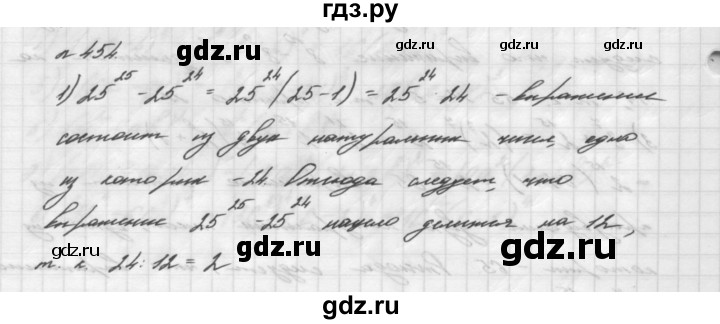 гдз.ру
№ 454
gdz.ru gdz.ru gdz.ru
1) 25²⁵ - 25²⁴ = 25²⁴(25-1) = 25²⁴ · 24 - выражение
состоит из двух натуральных чисел, одно
из которых - 24. Отсюда следует, что
выражение 25²⁵ - 25²⁴ нацело делится на 12,
gdz.ru gdz.ru gdz.ru
т. к. 24 : 12 = 2
gdz.ru